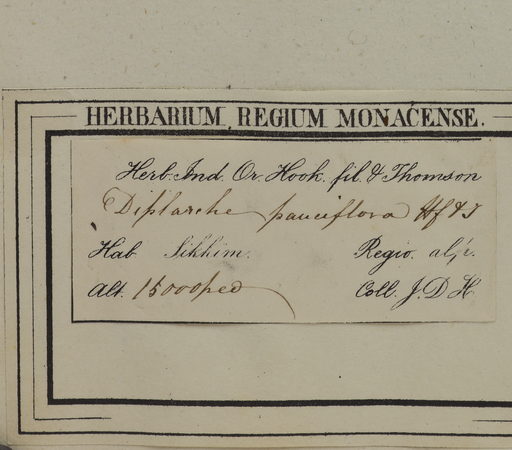 HERBARIUM REGIUM MONACENSE.
Herb. Ind. Or. Hook. fil. & Thomson
Diplarche pauciflora Hf & T
Hab Sikkim. Regio. alp.
Alt. 15000 ped Coll. J. D. H.